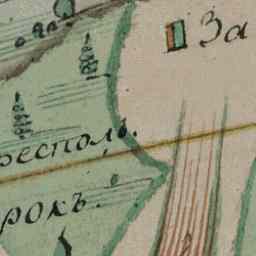 За
респолъ.
рокъ.